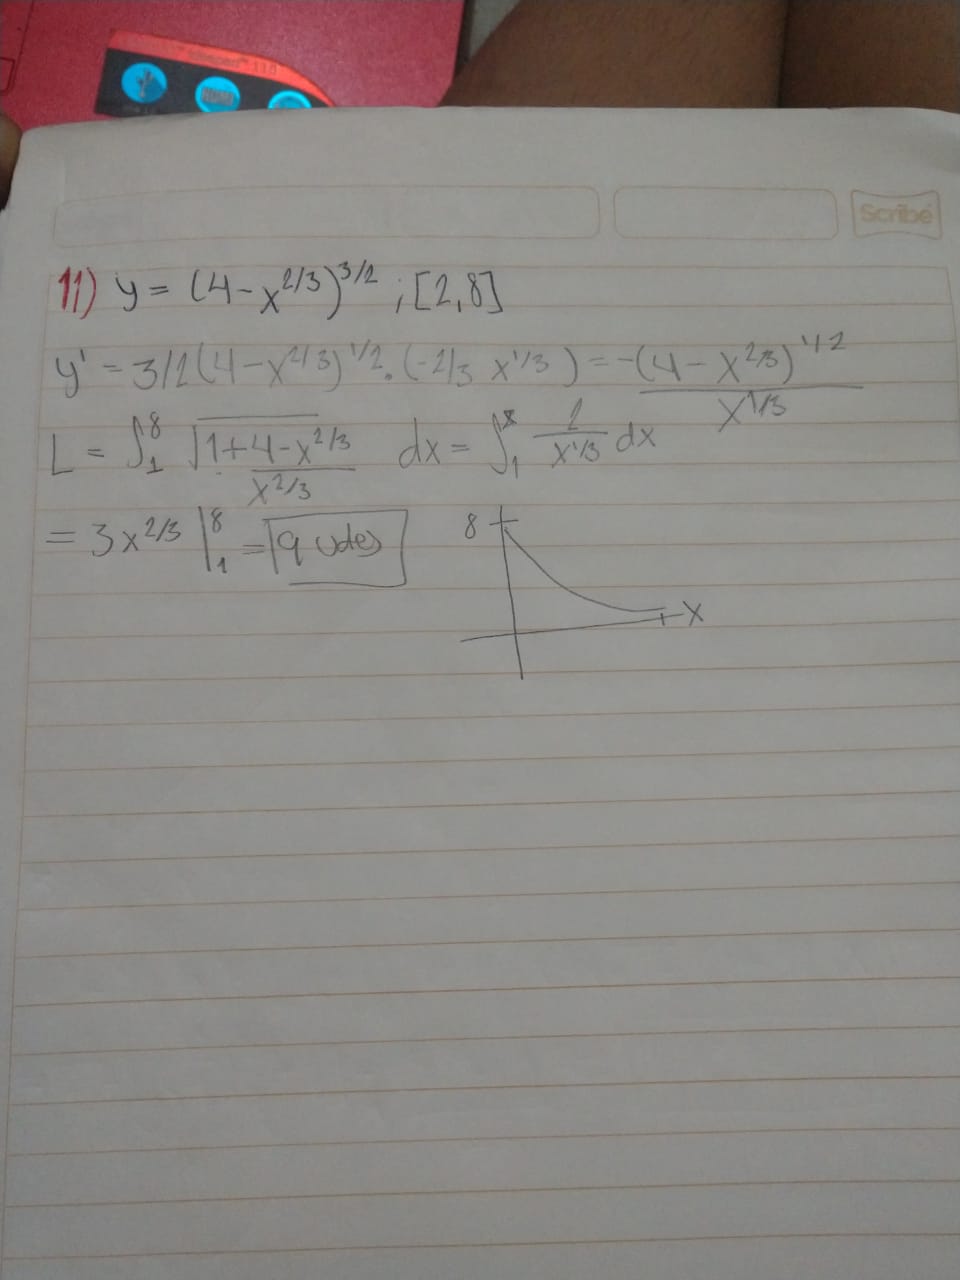 Scribe
11) y = (4-x^2/3)^3/2 ; [2,8]
y' = 3/2(4-x^2/3)^1/2 . (-2/3 x^1/3) = -(4-x^2/3)^1/2 / x^1/3
L = ∫_1^8 √1+4-x^2/3 / x^2/3 dx = ∫_1^8 2 / x^1/3 dx
= 3x^2/3 |_1^8 = 9 udes
8
x